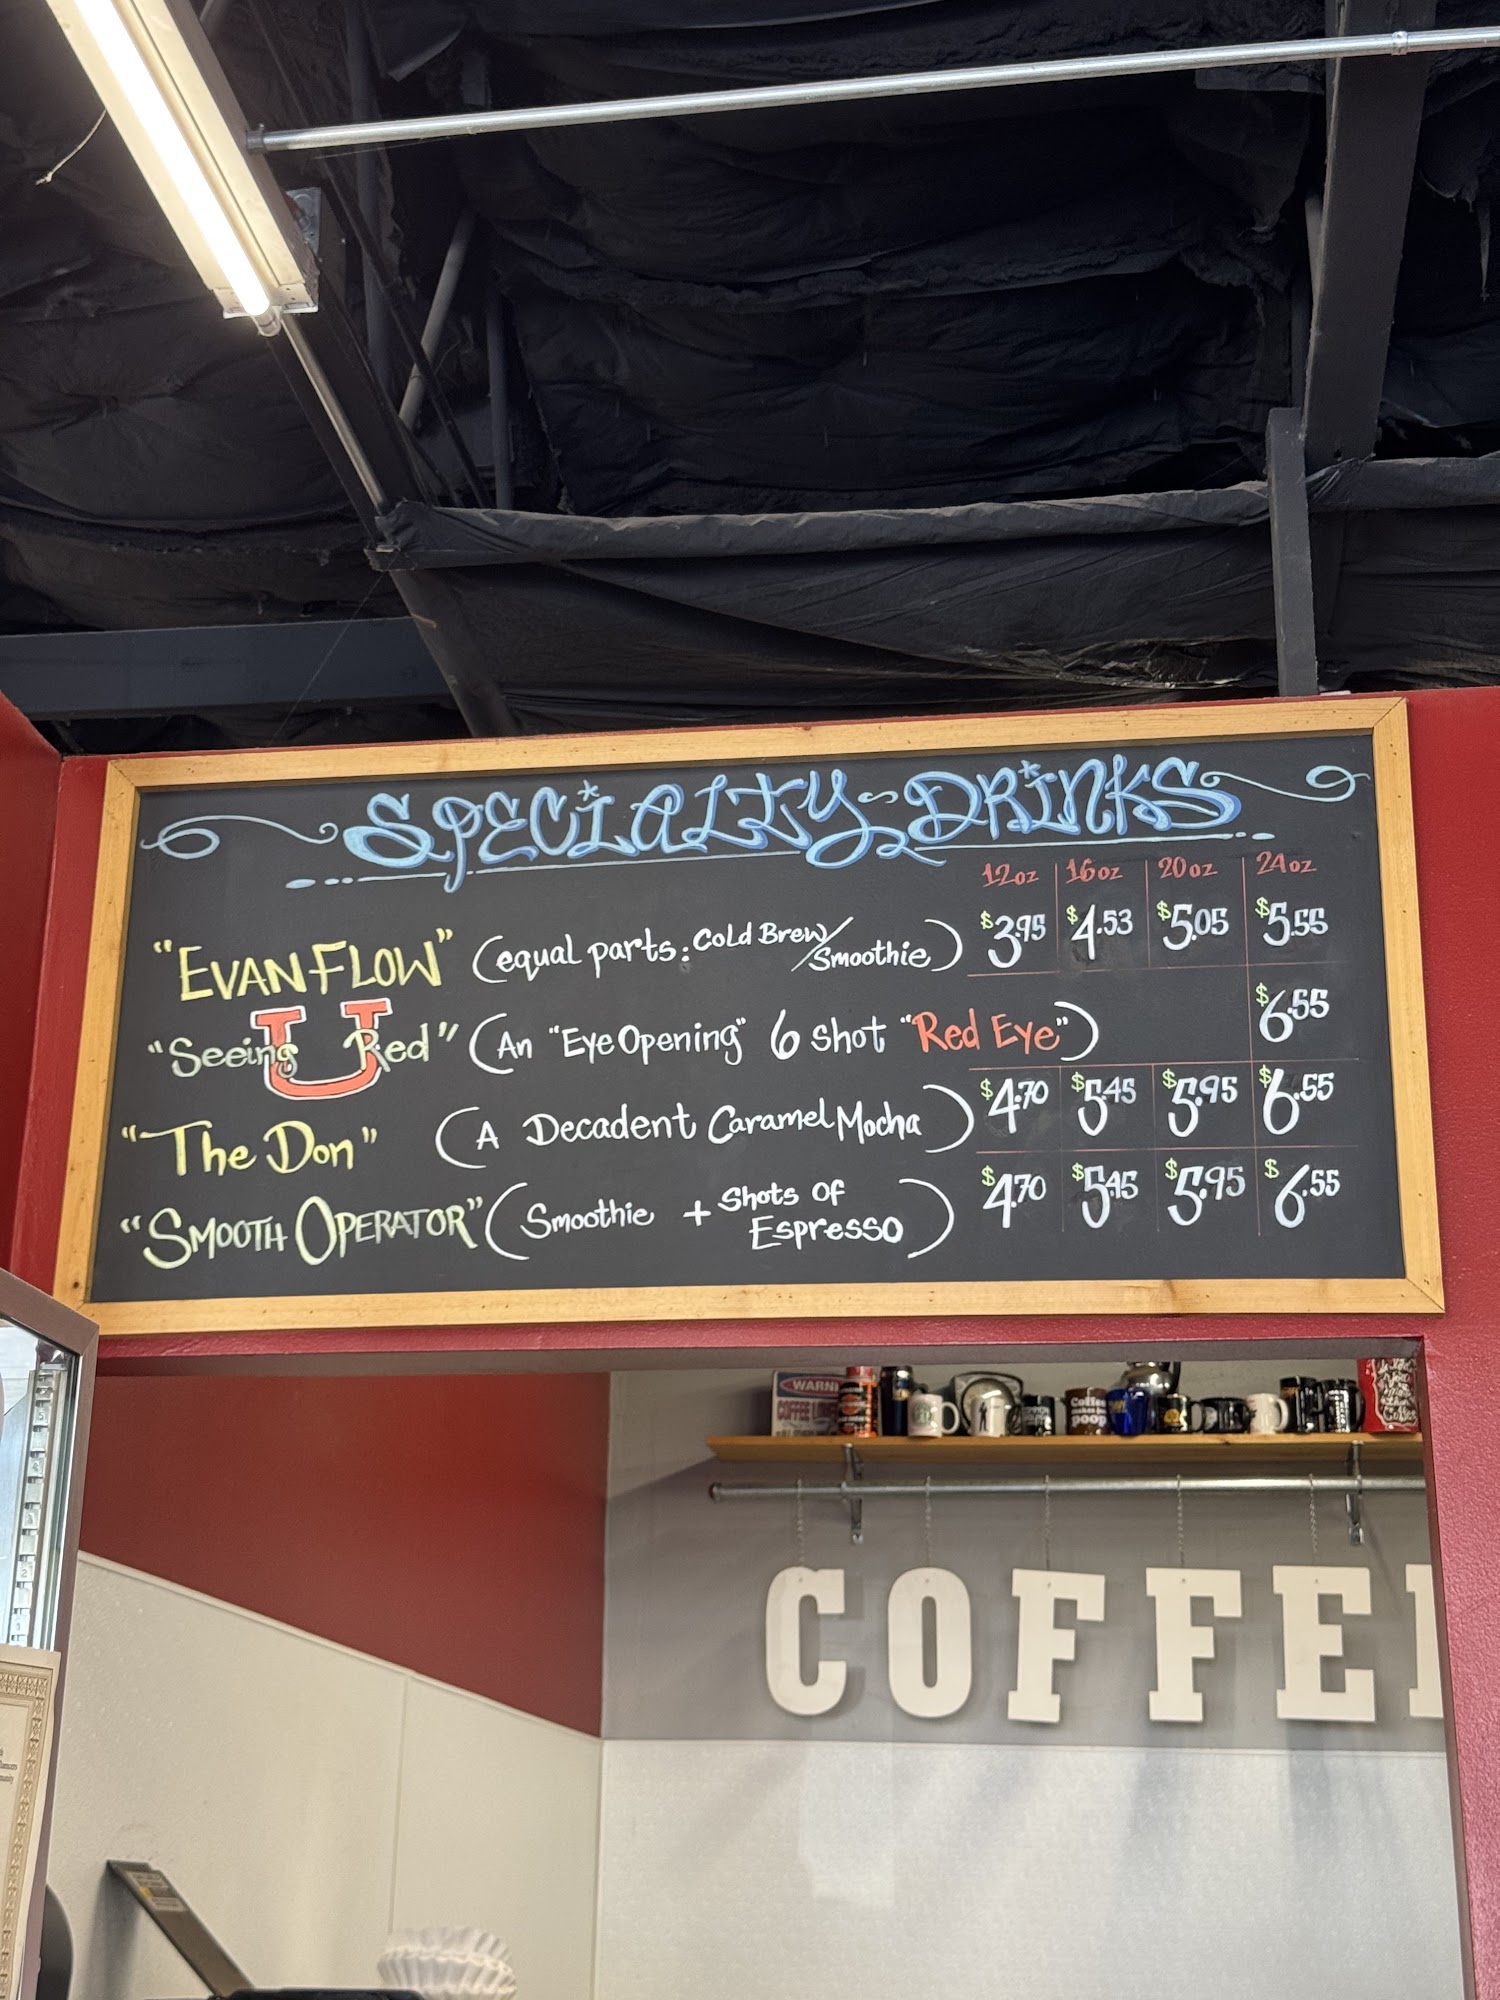 SPECIALTY DRINKS
12oz 16oz 20oz 24oz
"EVANFLOW" (equal parts: Cold Brew/Smoothie) $3.95 $4.53 $5.05 $5.55
"Seeing Red" (An "Eye Opening" 6 shot "Red Eye") $6.55
U
"The Don" (A Decadent Caramel Mocha) $4.70 $5.45 $5.95 $6.55
"SMOOTH OPERATOR" (Smoothie + Shots Of Espresso) $4.70 $5.45 $5.95 $6.55
WARNI
COFFEE
Coffee
poop
COFFE